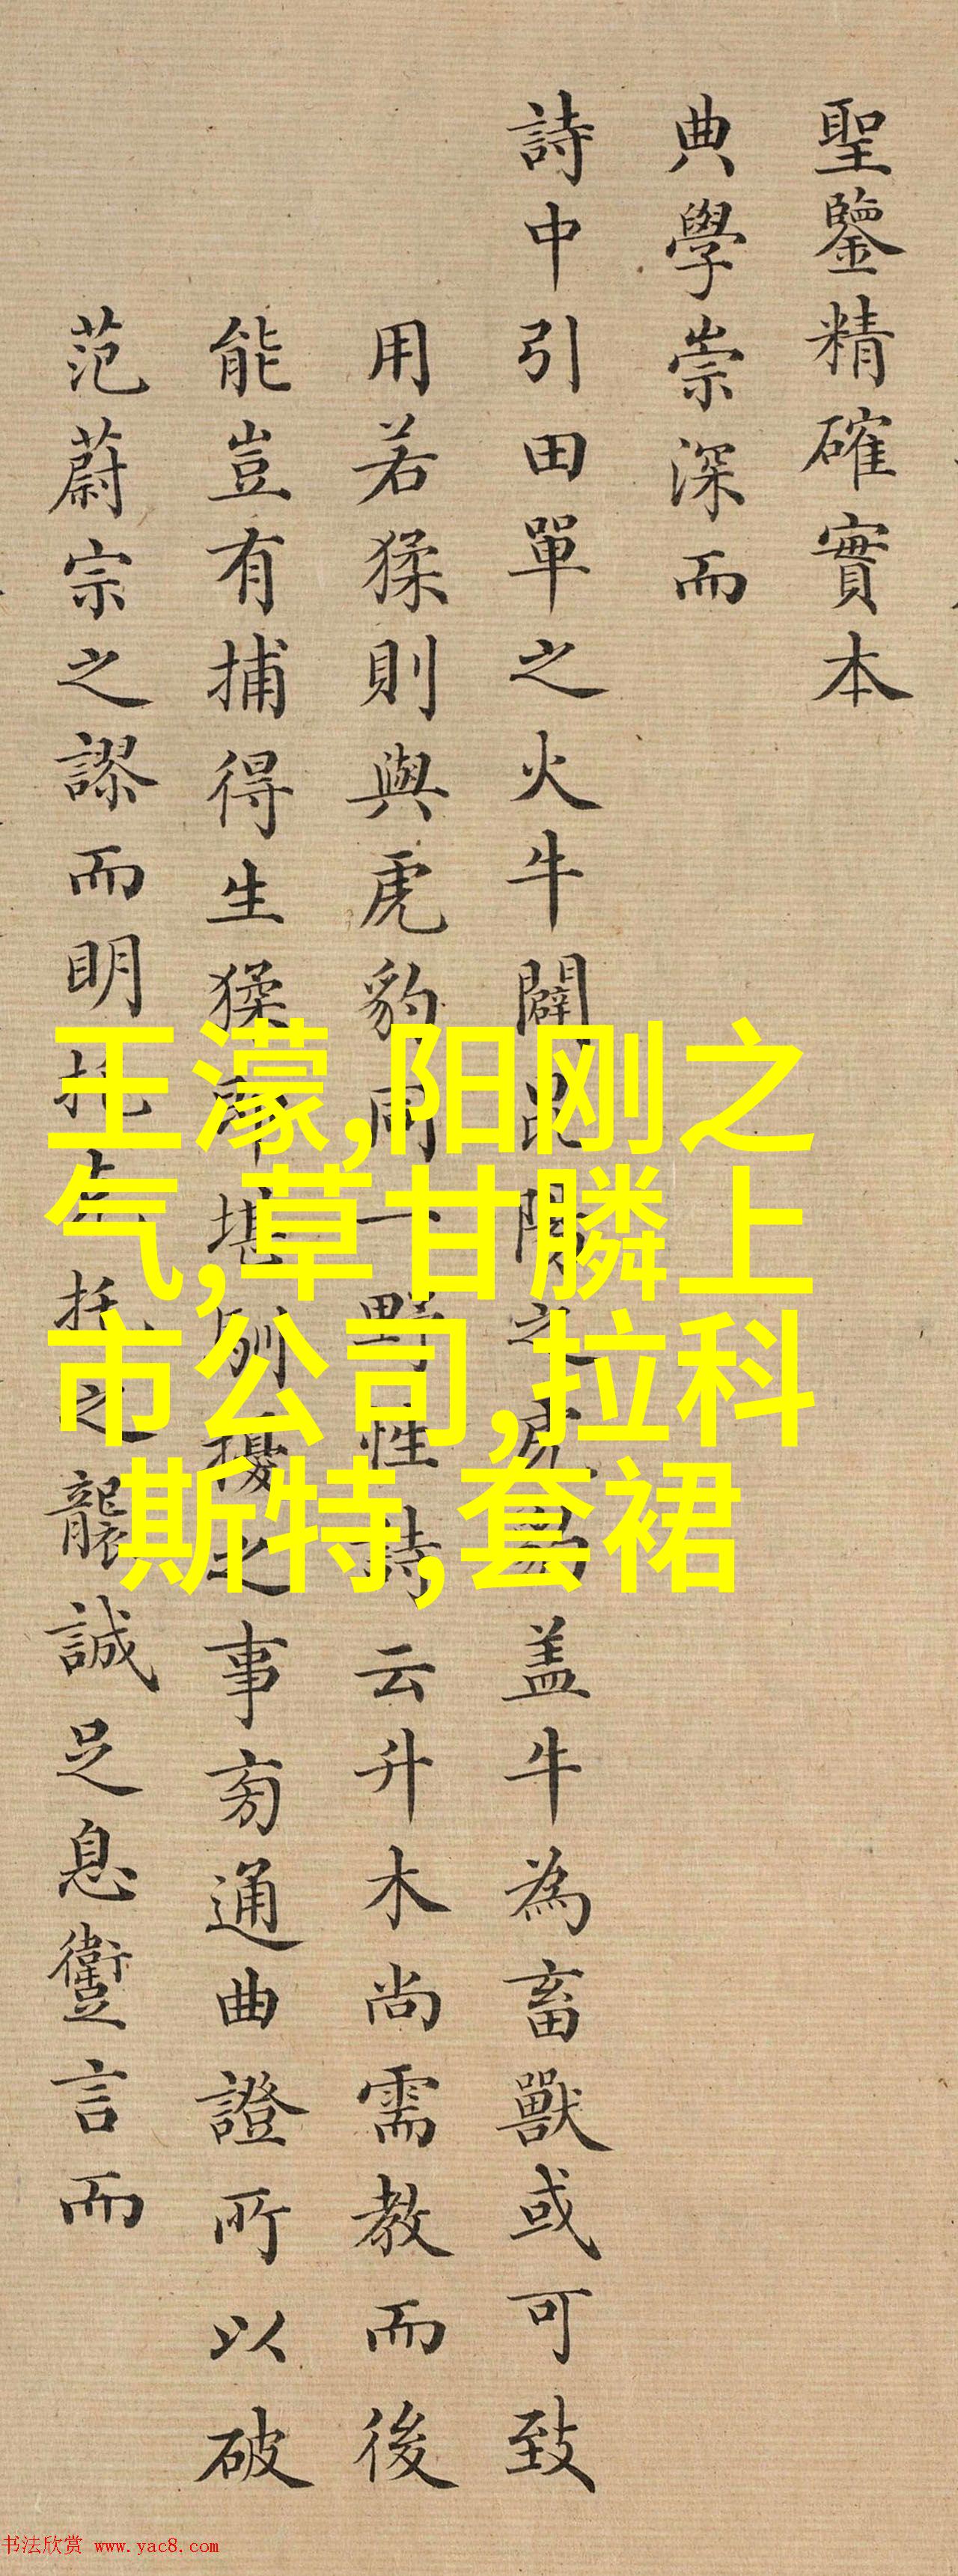 聖鑒精確實本
典學崇深而
詩中引田單之火牛闢昆陽之虎盖牛為畜獸或可致
用若猱則與虎豹同一野性詩云升木尚需教而後
能豈有捕得生猱即堪馴擾之事旁通曲證所以破
范蔚宗之謬而明托克托之襲誠足息躗言而
王濛,阳刚之
气,草甘膦上
市公司,拉科
斯特,套裙
书法欣赏 www.yac8.com